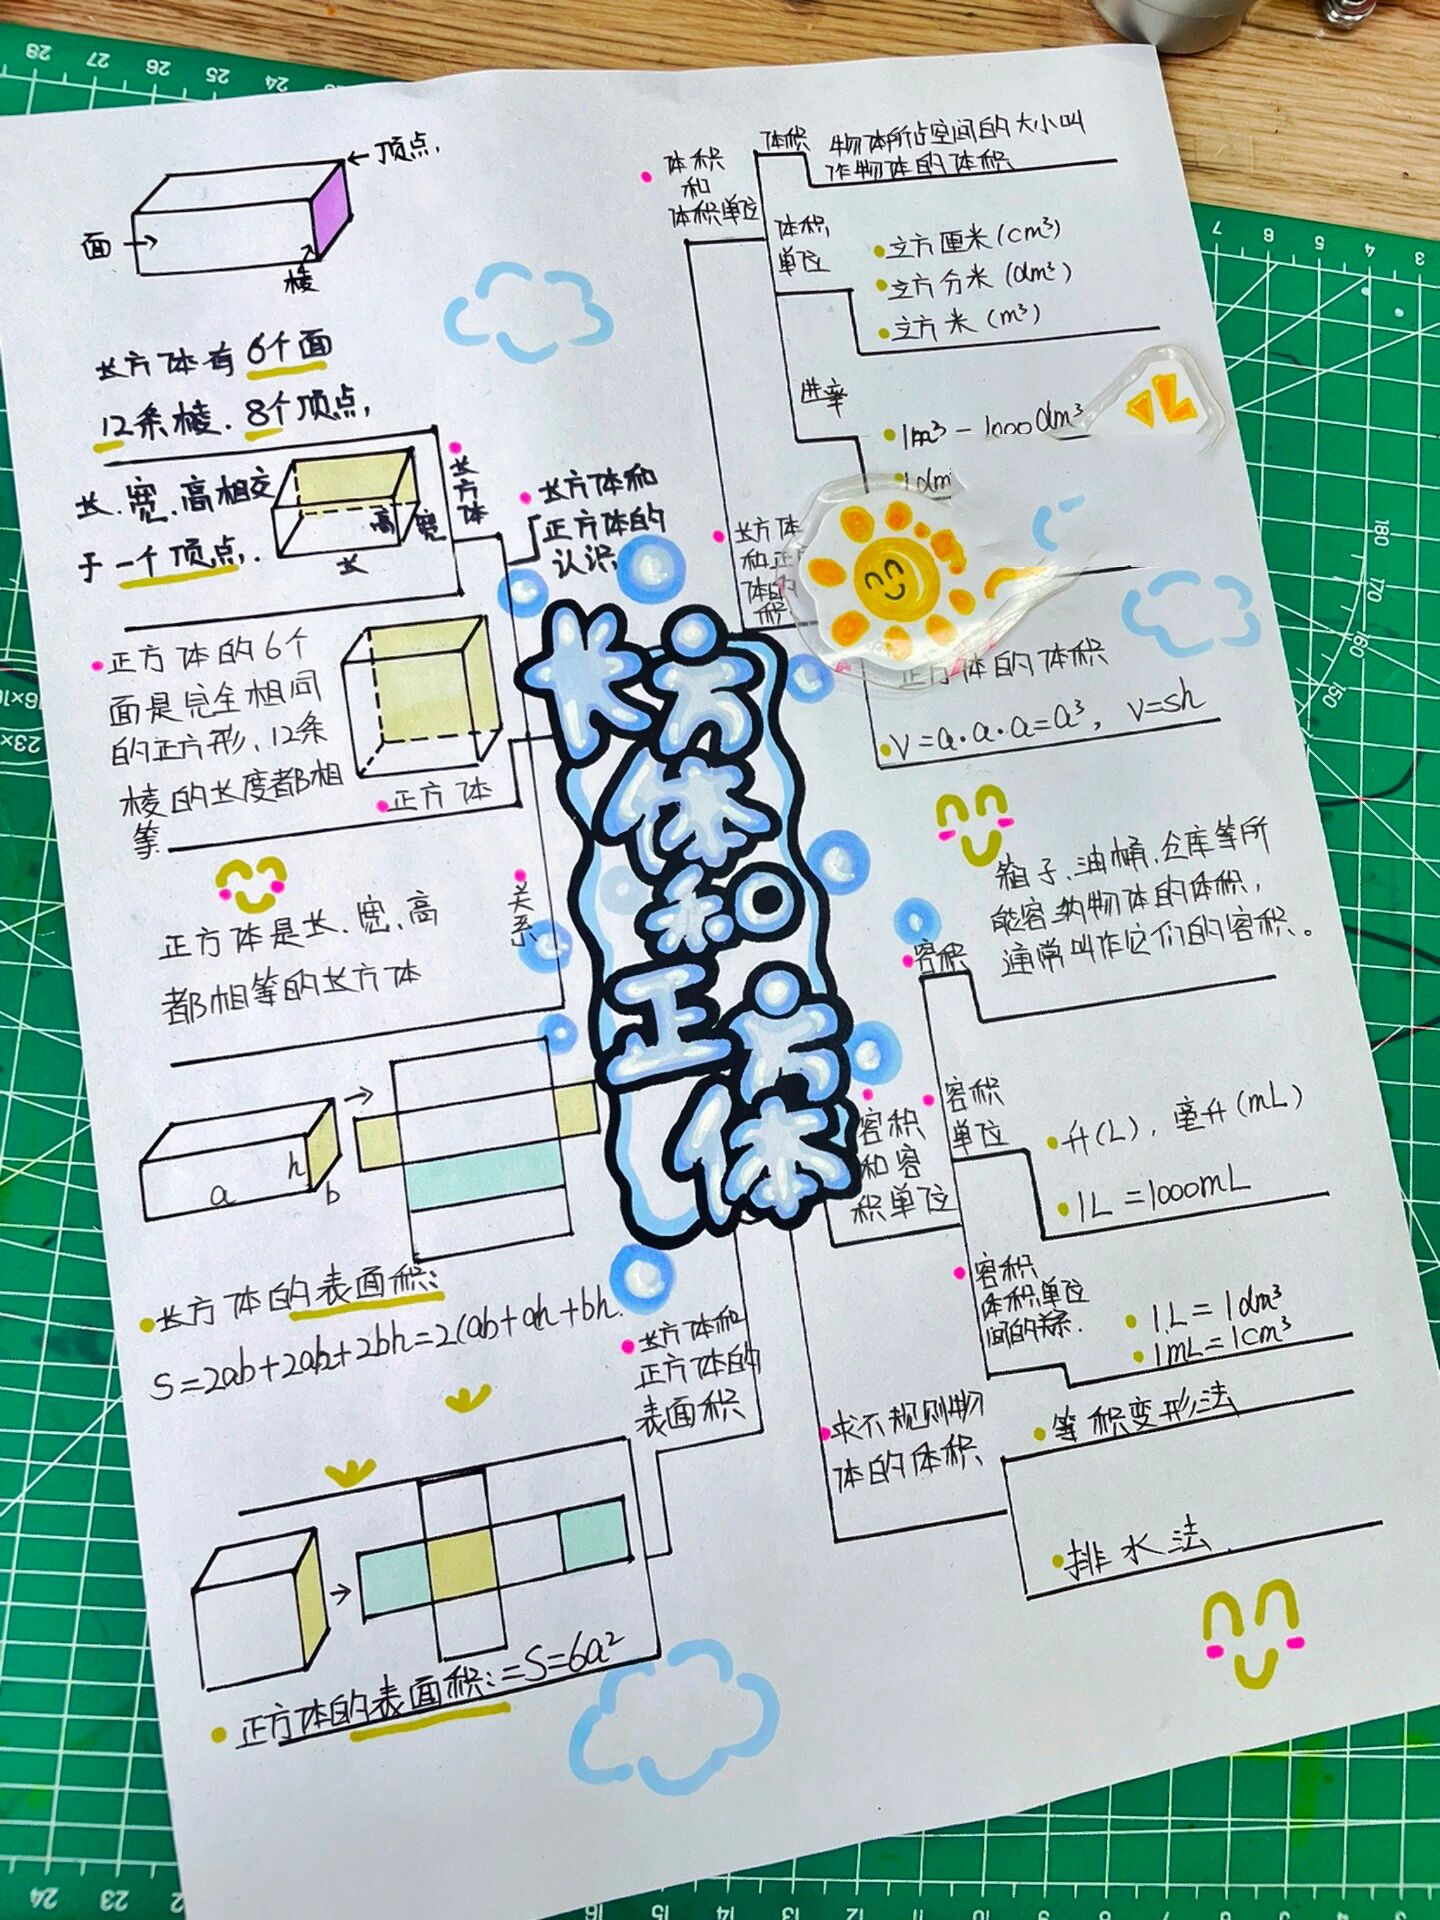 顶点
面
棱
长方体有6个面
12条棱、8个顶点,
长、宽、高相交
于一个顶点.
高
宽
长
长方体
长方体和
正方体的
认识
正方体的6个
面是完全相同
的正方形、12条
棱的长度都相
等
正方体
关系
正方体是长、宽、高
都相等的长方体
a
h
b
长方体的表面积:
S=2ab+2ah+2bh=2(ab+ah+bh
长方体和
正方体的
表面积
正方体的表面积:=S=6a²
长方
体
和
正方
体
体积
和
体积单位
体积
物体所占空间的大小叫
作物体的体积
体积
单位
立方厘米(cm³)
立方分米(dm³)
立方米(m³)
进率
1m³-1000dm³
1dm
长方体
和正
体的
积
正方体的体积
V=a·a·a=a³, V=sh
容积
和容
积单位
容积
箱子、油桶、仓库等所
能容纳物体的体积,
通常叫作它们的容积。
容积
单位
升(L), 毫升(mL)
1L=1000mL
容积
体积单位
间的关系.
1L=1dm³
1mL=1cm³
求不规则物
体的体积
等积变形法
排水法
28
27
26
25
24
7
6
5
4
3
180
170
160
150
24
23
16
15
14
13